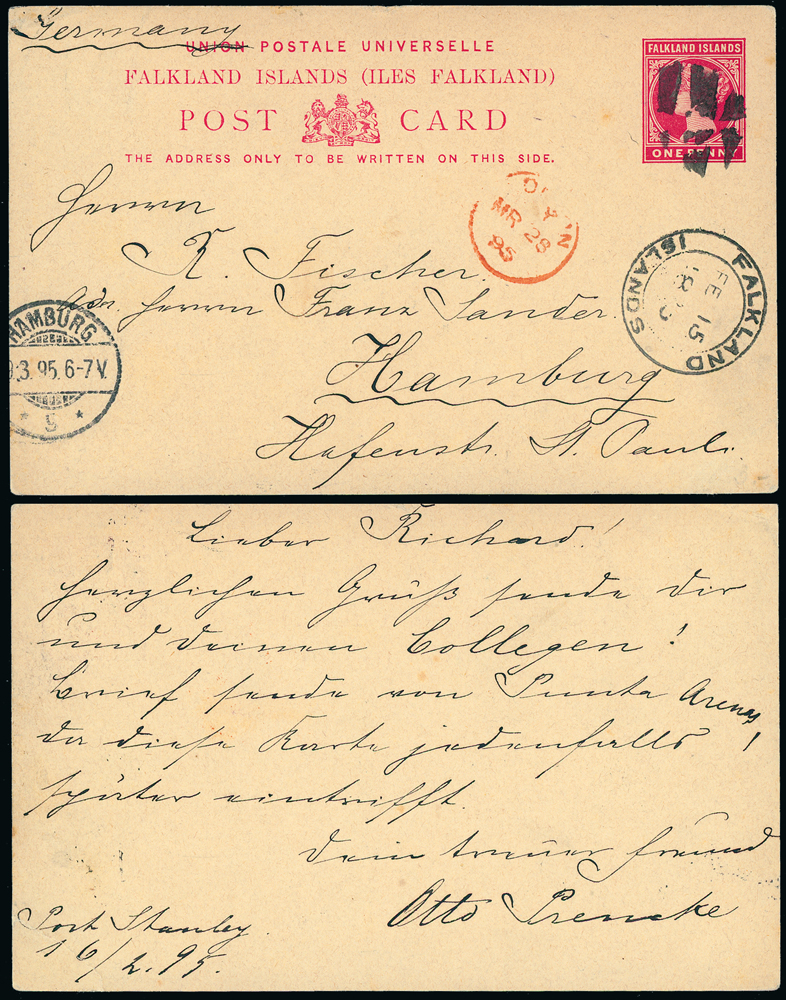 Germany
UNION POSTALE UNIVERSELLE
FALKLAND ISLANDS (ILES FALKLAND)
POST CARD
THE ADDRESS ONLY TO BE WRITTEN ON THIS SIDE.
FALKLAND ISLANDS
ONE PENNY
Herrn
R. Fischer.
Adr. Herrn Franz Sander.
Hamburg
Hafenstr. St. Pauli.
MR 28
95
FALKLAND ISLANDS
FE 15
HAMBURG
9.3.95.6-7V.
* 5 *
Lieber Richard!
Herzlichen Gruß sende Dir
und Deinen Collegen!
Brief sende von Punta Arenas,
da diese Karte jedenfalls
später eintrifft.
Dein treuer Freund
Otto Prencke
Port Stanley.
16/2.95.